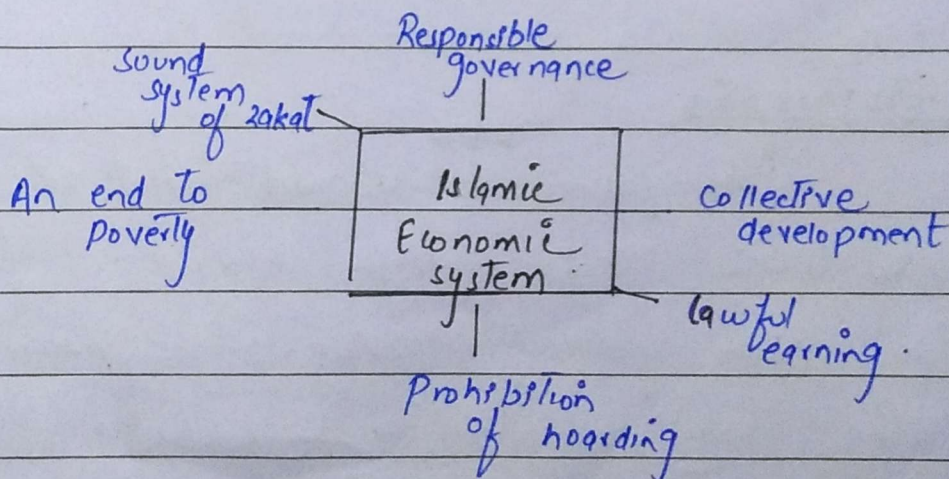 Responsible
governance
sound
system
of zakat
An end to
poverty
Islamic
Economic
system.
Collective
development
lawful
earning.
Prohibition
of hoarding